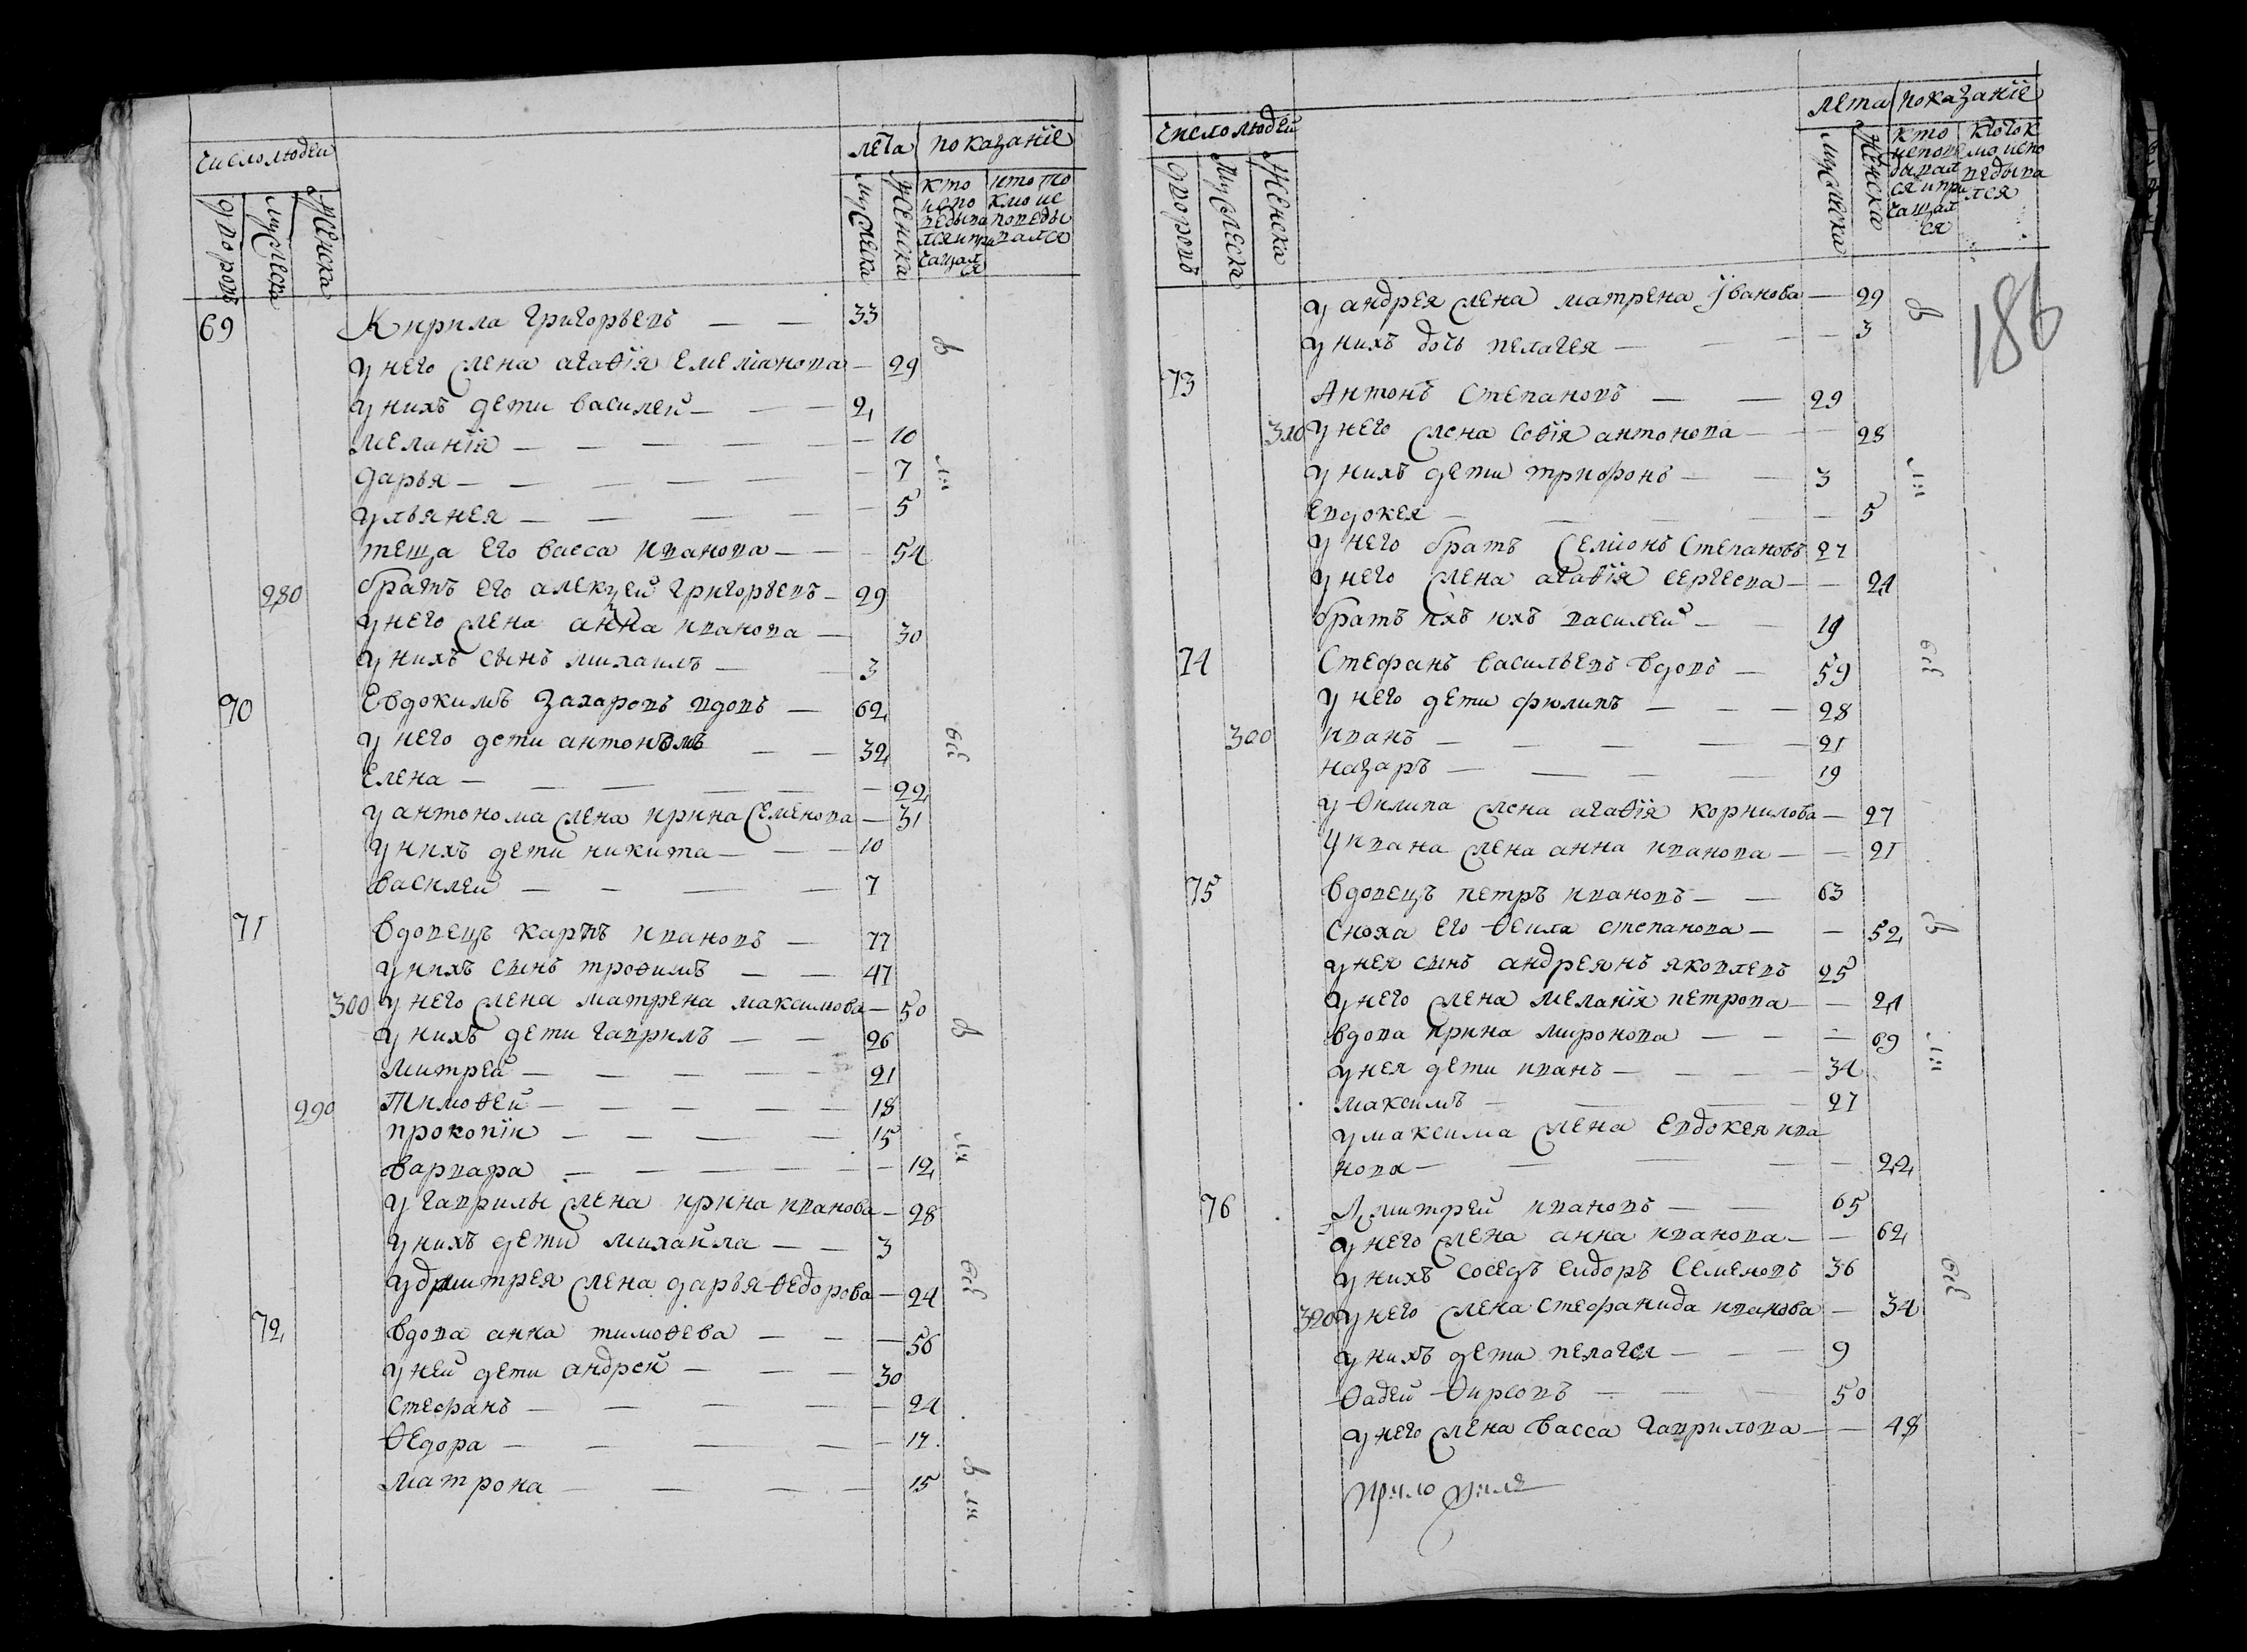 число людеи
лета
показанїе
дворовъ
мужеска
женска
мужеска
женска
кто испо ведыва лся и при чащал ся
кто то кмо ис поведы вался
69 Кирила григорьевъ — — 33
у него жена агаѳїя Емелїанова — 29
у нихъ дети василеи — — 2
меланїя — — — — — 10
дарья — — — — — 7
ульянея — — — — — 5
теща его васса иванова — — — 54
280 братъ его алекѣеи григорьевъ — 29
у него жена анна иванова — 30
у нихъ сынъ михаилъ — — 3
70 Евдокимъ захаровъ вдовъ — 62
у него дети антономъ — — 32
Елена — — — — — 22
у антонома жена ирина Семенова — 31
у нихъ дети никита — — — 10
василеи — — — — 7
71 вдовецъ карпъ ивановъ — 77
у нихъ сынъ троѳимъ — — 47
300 у него жена матрена максимова — 50
у нихъ дети гаврилъ — — 26
митреи — — — — — 21
290 Тимоѳеи — — — — — 18
прокопїи — — — — 15
варвара — — — — — — 12
у гаврилы жена ирина иванова — 28
у нихъ дети михаила — — 3
у дмитрея жена дарья ѳедорова — 24
72 вдова анна тимоѳева — — — 56
у неи дети андреи — — — 30
стефанъ — — — — — 24
ѳедора — — — — — 17
матрона — — — — 15
число людеи
лета
показанїе
дворовъ
мужеска
женска
мужеска
женска
кто испове дывал ся и при чащал ся
кто ток мо испо ведыва лся
186
у андрея жена матрена Iванова — 29
у нихъ дочь пелагея — — — — 3
73 Антонъ Степановъ — — 29
310 у него жена софїя антонова — — 28
у нихъ дети трифонъ — — 3
евдокея — — — — — 5
у него братъ Семионъ Степановъ 27
у него жена агаѳїя сергеева — — 24
братъ ихъ василеи — — 19
74 Стефанъ васильевъ вдовъ — 59
у него дети фюлипъ — — — 28
300 иванъ — — — — — 21
назаръ — — — — 19
у Ѳилипа жена агаѳїя корнилова — 27
у ивана жена анна иванова — — 21
75 вдовецъ петръ ивановъ — — 63
сноха его ѳекла степанова — — 52
у нея сынъ андреянъ яковлевъ 25
у него жена меланїя петрова — — 24
вдова ирина миронова — — — 69
у нея дети иванъ — — — — 34
максимъ — — — 27
у максима жена Евдокея ива
нова — — — — 22
76 Дмитреи ивановъ — — 65
у него жена анна иванова — — 62
у нихъ соседъ сидоръ Семеновъ 36
320 у него жена стефанида иванова — 34
у нихъ дети пелагея — — — 9
Ѳадеи Ѳирсовъ — — — 50
у него жена васса гаврилова — — 48